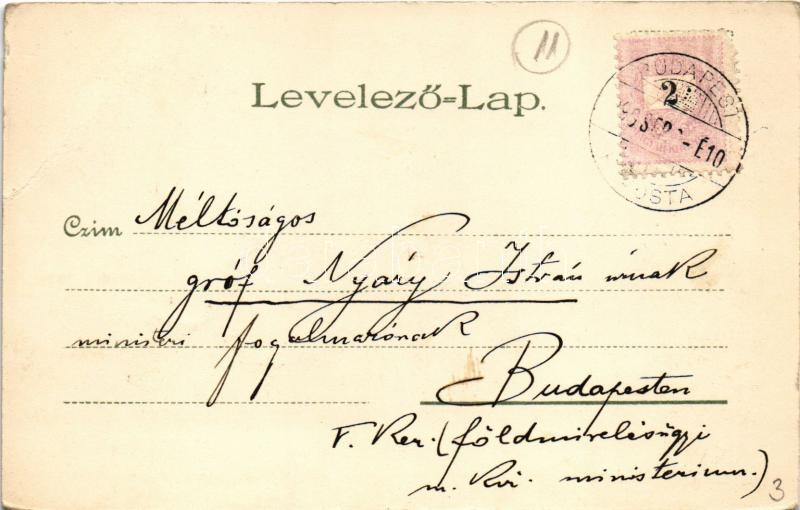 11
Levelező=Lap.
2
BUDAPEST
É10
POSTA
Czim Méltóságos
gróf Nyáry István úrnak
miniszteri fogalmazónak
Budapesten
V. Ker. (földmivelésügyi
m. kir. ministerium.)
3